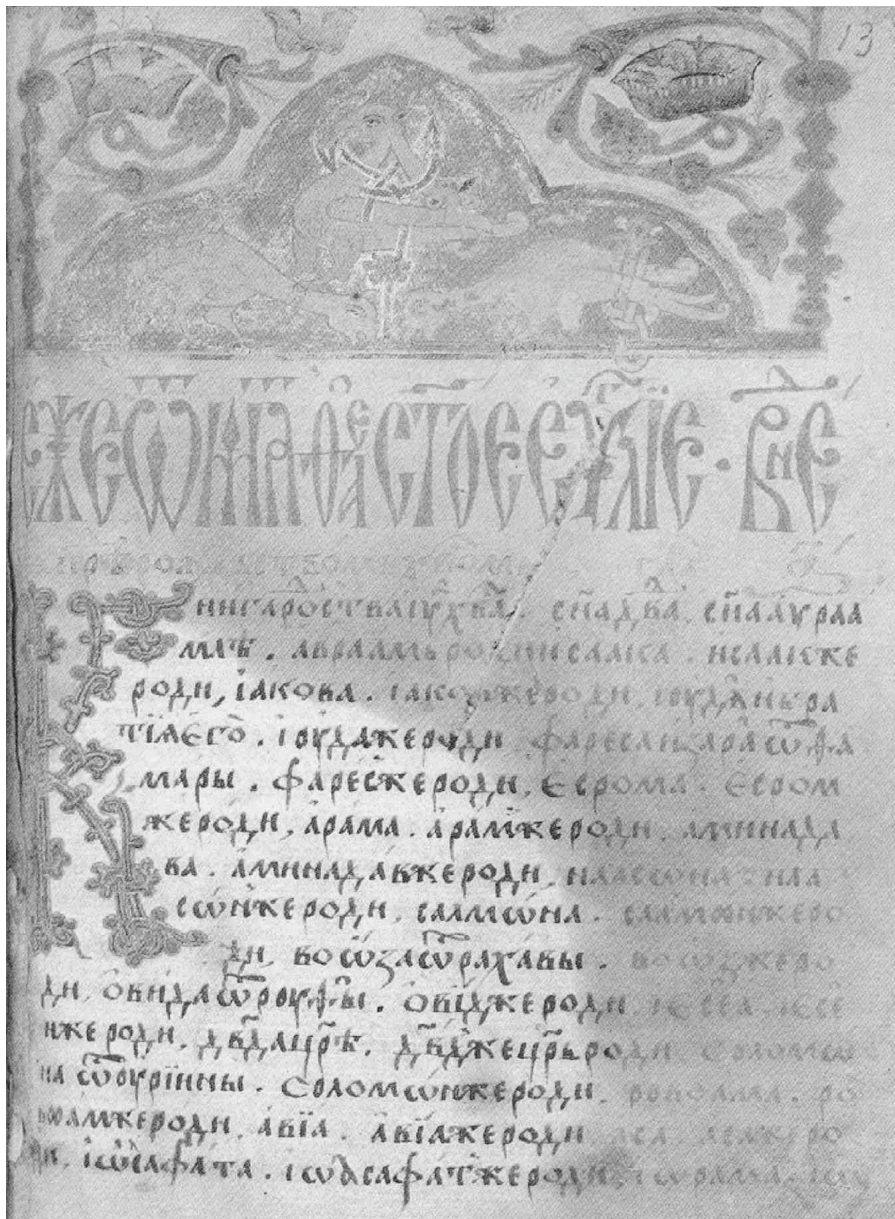 13
ЕЖЕ Ѿ МАТ ФЕА СТОЕ ЕУЛІЕ · ВНЕ
НИГА РОСТВА ІУ ХВА . СНА ДВА , СНА АУРАА
МАѢ . АВРААМЬ РОДИ ИСААКА . ИСААКЖЕ
РОДИ , ІАКОВА . ІАКОВЖЕ РОДИ , ІОУДѪ И БРА
ТІѪ ЕГО . ІОУДАЖЕ РОДИ ФАРЕСА И ЗАРА Ѿ ФА
МАРЫ . ФАРЕСЖЕ РОДИ , ЕСРОМА . ЕСРОМ
ЖЕ РОДИ , АРАМА . АРАМЖЕ РОДИ , АМИНАДА
ВА . АМИНАДАВЖЕ РОДИ , НААСѠНА . НАА
СѠНЖЕ РОДИ , САЛМѠНА . САЛМѠНЖЕ РО
ДИ , ВОѠЗА Ѿ РАХАВЫ . ВОѠЗЖЕ РО
ДИ , ОВИДА Ѿ РОУФЫ . ОВИДЖЕ РОДИ , ІЕСЕА . ІЕСЕ
ИЖЕ РОДИ , ДВДА ЦРѢ . ДВДЖЕ ЦРЬ РОДИ , СОЛОМѠ
НА Ѿ ОУРІИНЫ . СОЛОМѠНЖЕ РОДИ , РОВОАМА . РО
ВОАМЖЕ РОДИ , АВІА . АВІАЖЕ РОДИ АСА . АСАЖЕ РО
ДИ , ІѠСАФАТА . ІѠАСАФАТЖЕ РОДИ , ІѠРАМА . ІѠ